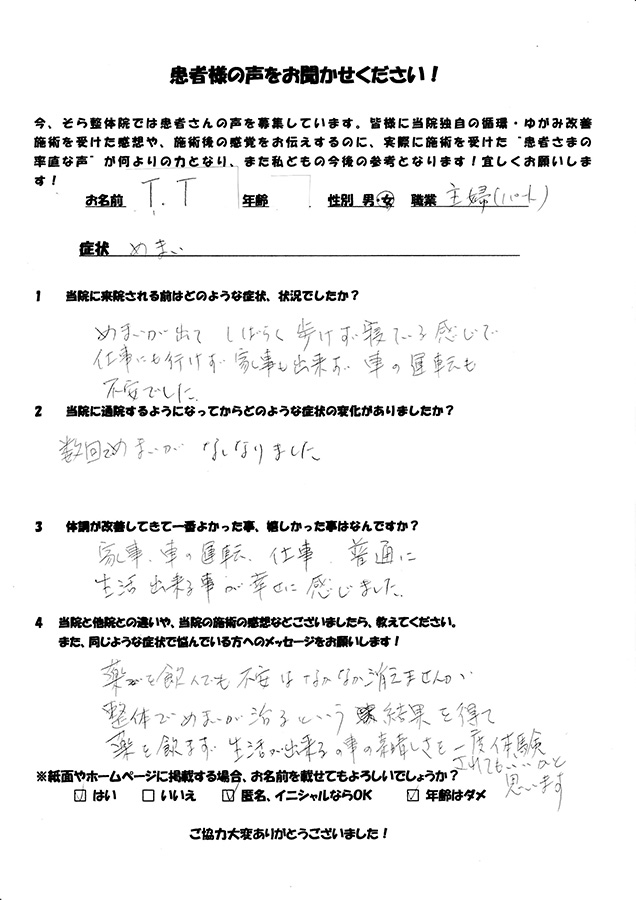 患者様の声をお聞かせください！
今、そら整体院では患者さんの声を募集しています。皆様に当院独自の循環・ゆがみ改善
施術を受けた感想や、施術後の感覚をお伝えするのに、実際に施術を受けた“患者さまの
率直な声”が何よりの力となり、また私どもの今後の参考となります！宜しくお願いしま
す！
お名前 T.T 年齢 性別 男・女 職業 主婦(パート)
症状 めまい
1 当院に来院される前はどのような症状、状況でしたか？
めまいが出て しばらく歩けず寝ている感じで
仕事にも行けず 家事も出来ず 車の運転も
不安でした。
2 当院に通院するようになってからどのような症状の変化がありましたか？
数回でめまいが なくなりました。
3 体調が改善してきて一番よかった事、嬉しかった事はなんですか？
家事、車の運転、仕事 普通に
生活 出来る事が幸せに感じました。
4 当院と他院との違いや、当院の施術の感想などございましたら、教えてください。
また、同じような症状で悩んでいる方へのメッセージをお願いします！
薬を飲んでも不安はなかなか消えませんが
整体でめまいが治るという 結果を得て
薬を飲まず 生活が出来るの事の素晴しさを一度体験
されてもいいかと
思います
※紙面やホームページに掲載する場合、お名前を載せてもよろしいでしょうか？
☑ はい □ いいえ ☑ 匿名、イニシャルならOK ☑ 年齢はダメ
ご協力大変ありがとうございました！